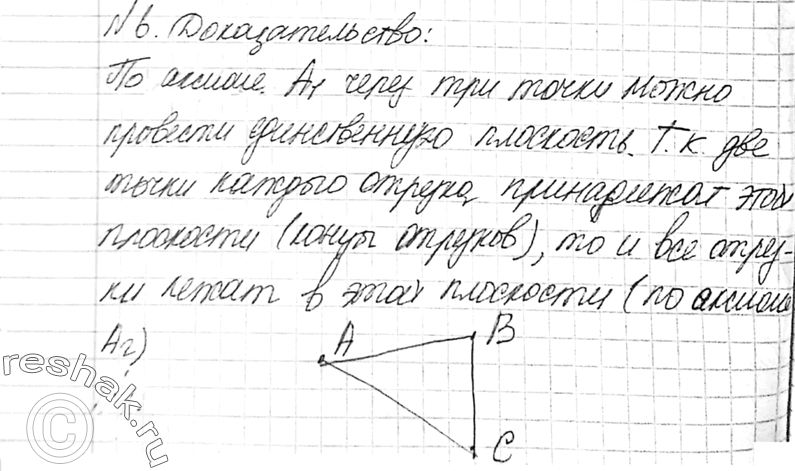 №6. Доказательство:
По аксиоме A1 через три точки можно
провести единственную плоскость. Т.к. две
точки каждого отрезка принадлежат этой
плоскости (концы отрезков), то и все отрез-
ки лежат в этой плоскости (по аксиоме
A2)
A
B
C
reshak.ru
©